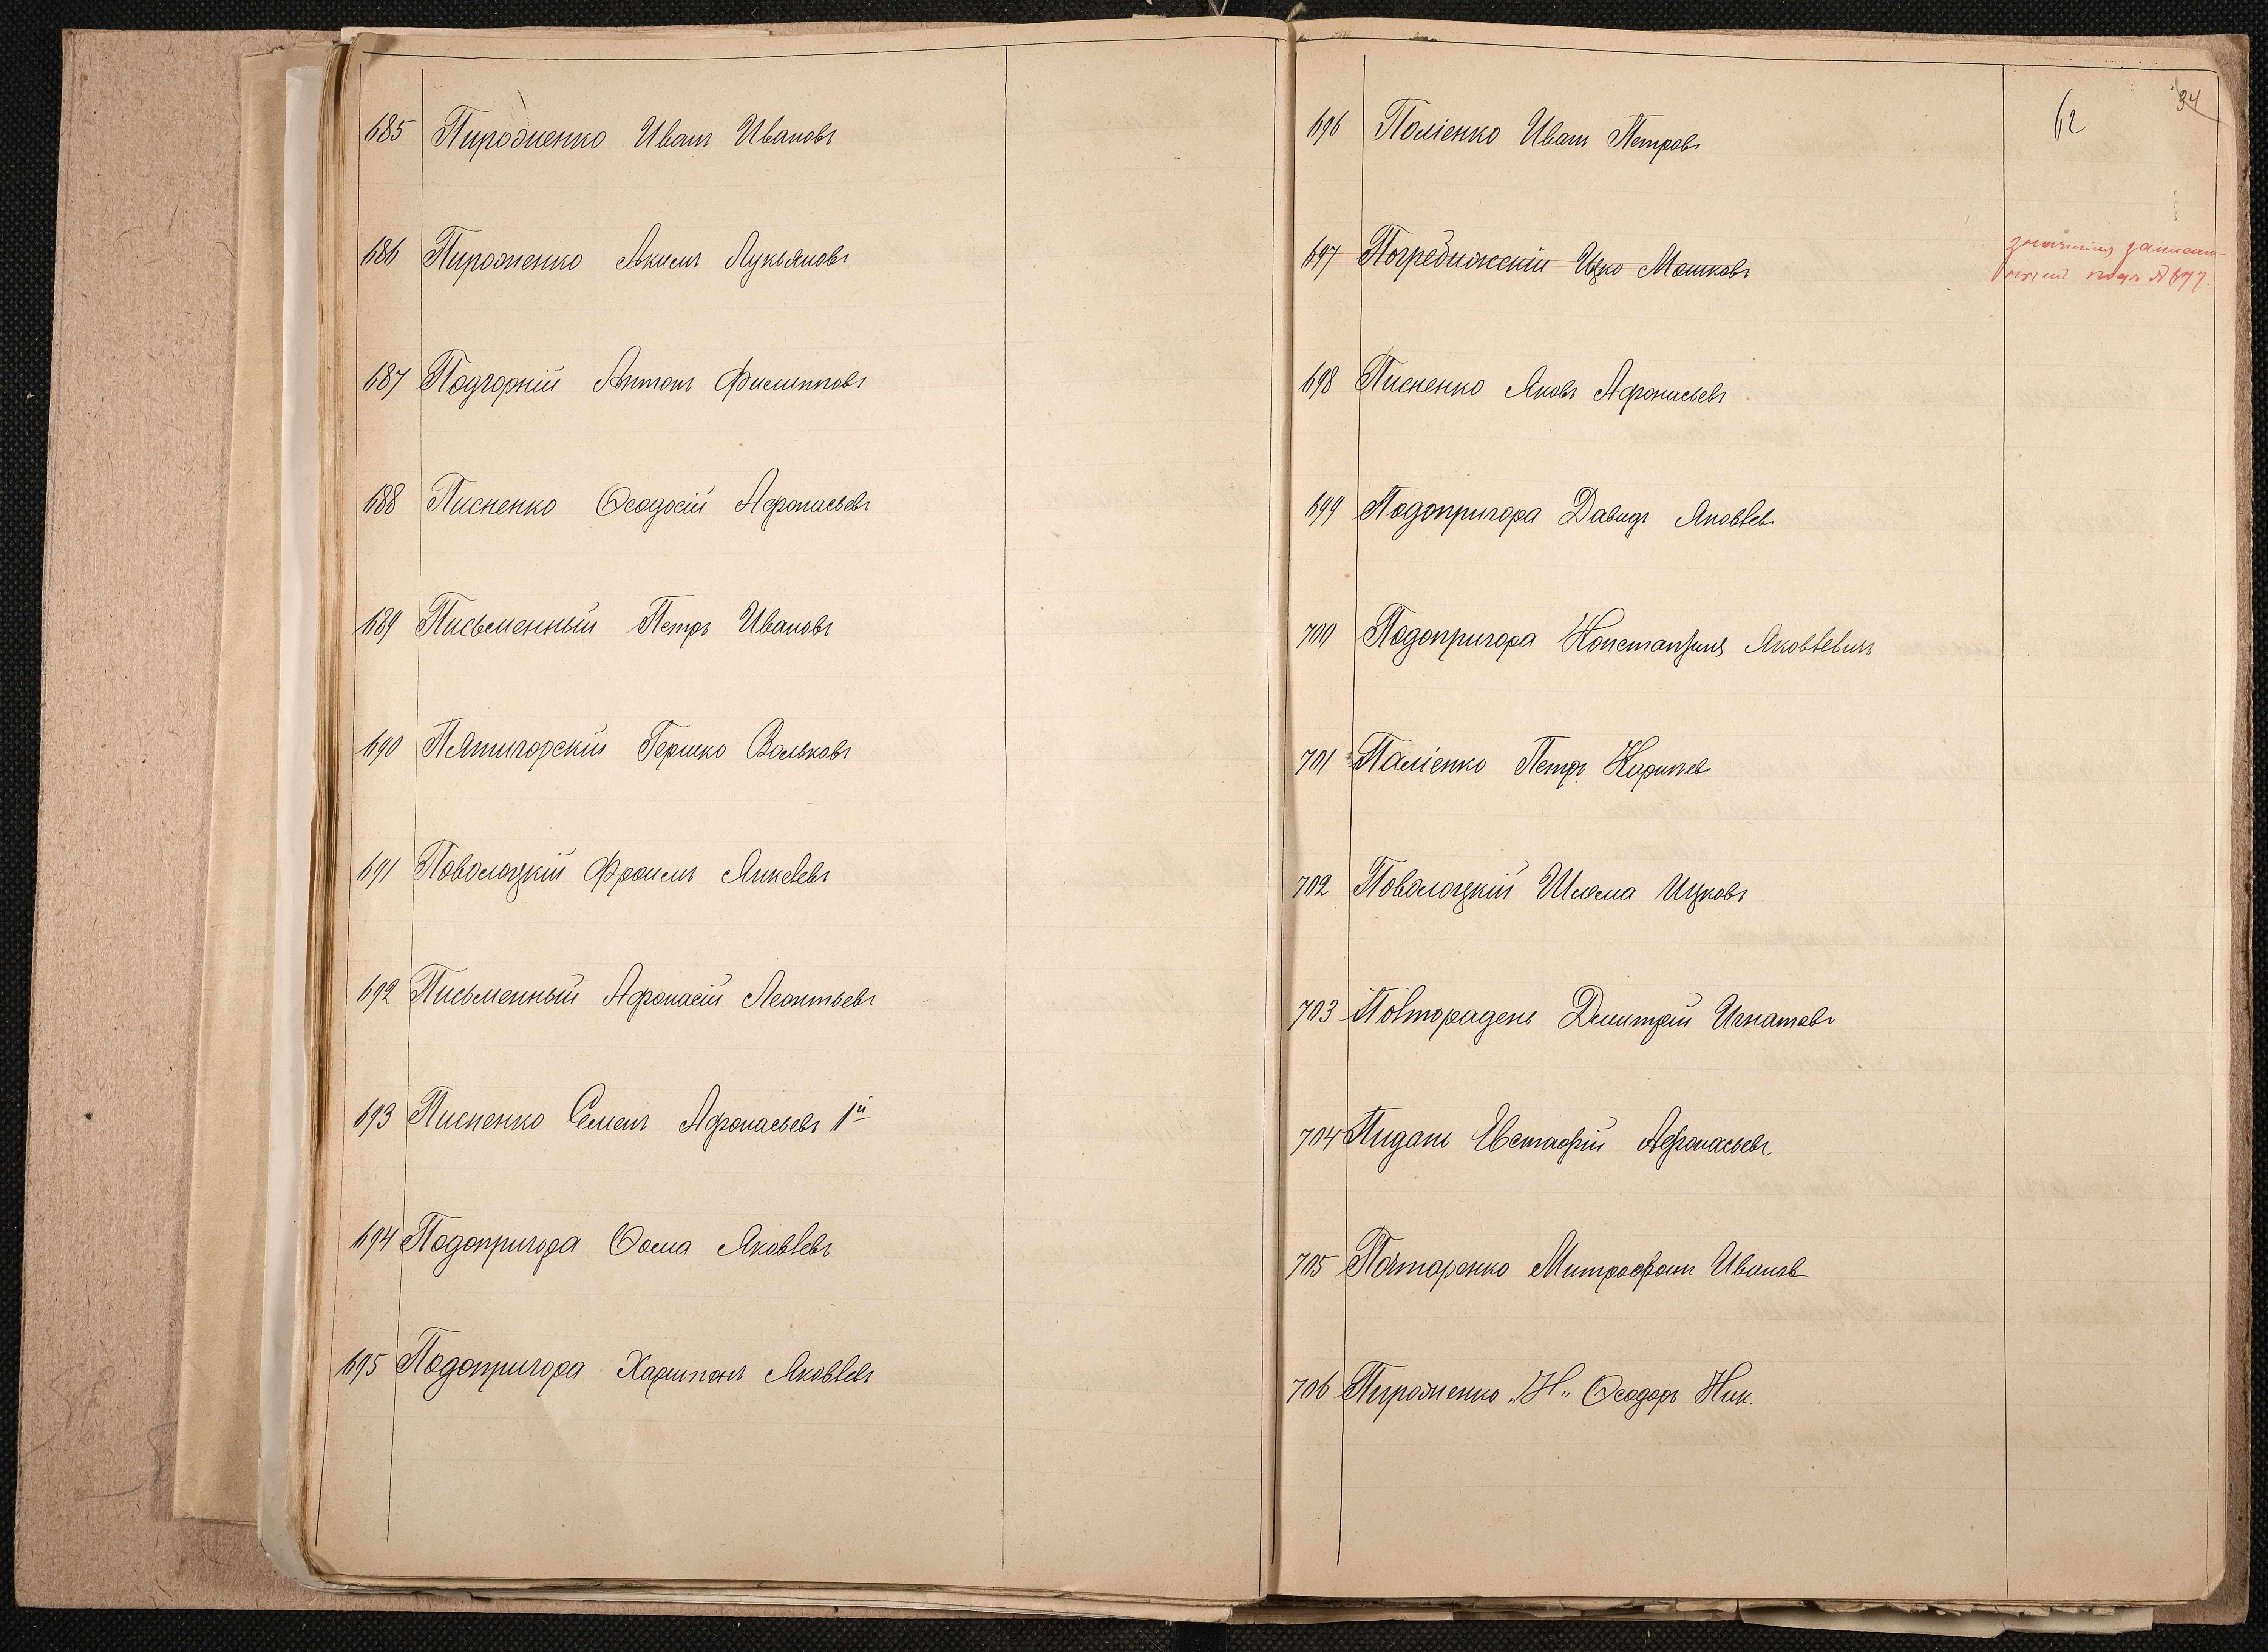 685 Пирожненко Иванъ Ивановъ
686 Пирожненко Акимъ Лукьяновъ
687 Подгорній Антонъ Филипповъ
688 Писненко Ѳеодосій Афонасьевъ
689 Письменный Петръ Ивановъ
690 Пятигорскій Гершко Вольковъ
691 Поволоцкій Фроимъ Янкелевъ
692 Письменный Афонасій Леонтьевъ
693 Писненко Семенъ Афонасьевъ 1й
694 Подопригора Ѳома Яковлевъ
695 Подопригора Харитонъ Яковлевъ
34
62
696 Поліенко Иванъ Петровъ
697 Погребижскій Ицко Мошковъ
записан-
подъ №677
698 Писненко Яковъ Афонасьевъ
699 Подопригора Давидъ Яковлев
700 Подопригора Константинъ Яковлевичъ
701 Паліенко Петръ Карпов
702 Поволоцкій Шлома Ицковъ
703 Повторадень Дмитрій Игнатовъ
704 Пидань Евстафій Афонасьевъ
705 Почтаренко Митрофанъ Иванов
706 Пирожненко „Н„ Ѳеодоръ Ник.